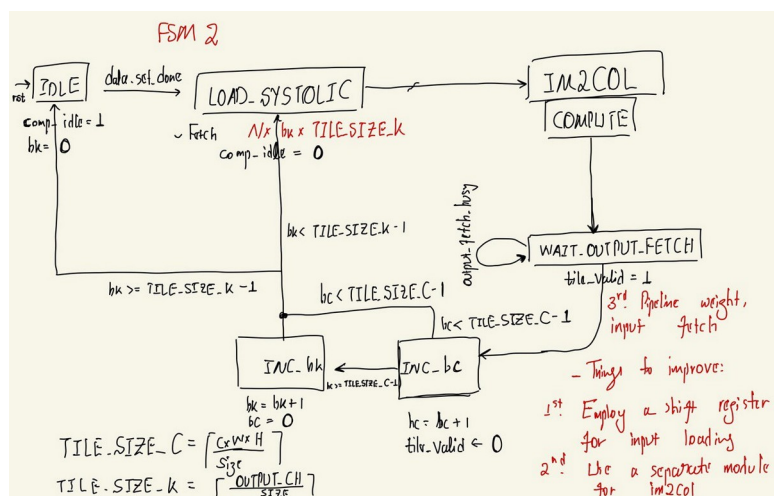 FSM 2
rst
IDLE
data_set_done
LOAD_SYSTOLIC
IM2COL
COMPUTE
comp_idle = 1
bk = 0
Fetch
N x bk x TILE_SIZE_K
comp_idle = 0
output_fetch_busy
WAIT_OUTPUT_FETCH
tile_valid = 1
bk < TILE_SIZE_K-1
bk >= TILE_SIZE_K-1
bc < TILE_SIZE_C-1
bc < TILE_SIZE_C-1
3rd: Pipeline weight,
input fetch
INC_bk
>= TILE_SIZE_C-1
INC_bc
bk = bk+1
bc = 0
bc = bc + 1
tile_valid ← 0
- Things to improve:
1st: Employ a shift register
for input loading
2nd: Use a separate module
for im2col
TILE_SIZE_C = ⌈CxWxH / Size⌉
TILE_SIZE_K = ⌈OUTPUT_CH / SIZE⌉